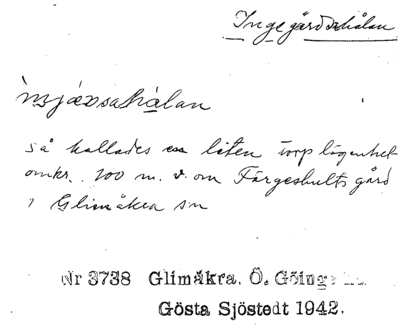 Ingegårdshålan
så kallades en liten torplägenhet
omkr. 200 m. v. om Färgeshults gård
i Glimåkra sn
Nr 3738 Glimåkra. Ö. Göinge
Gösta Sjöstedt 1942.